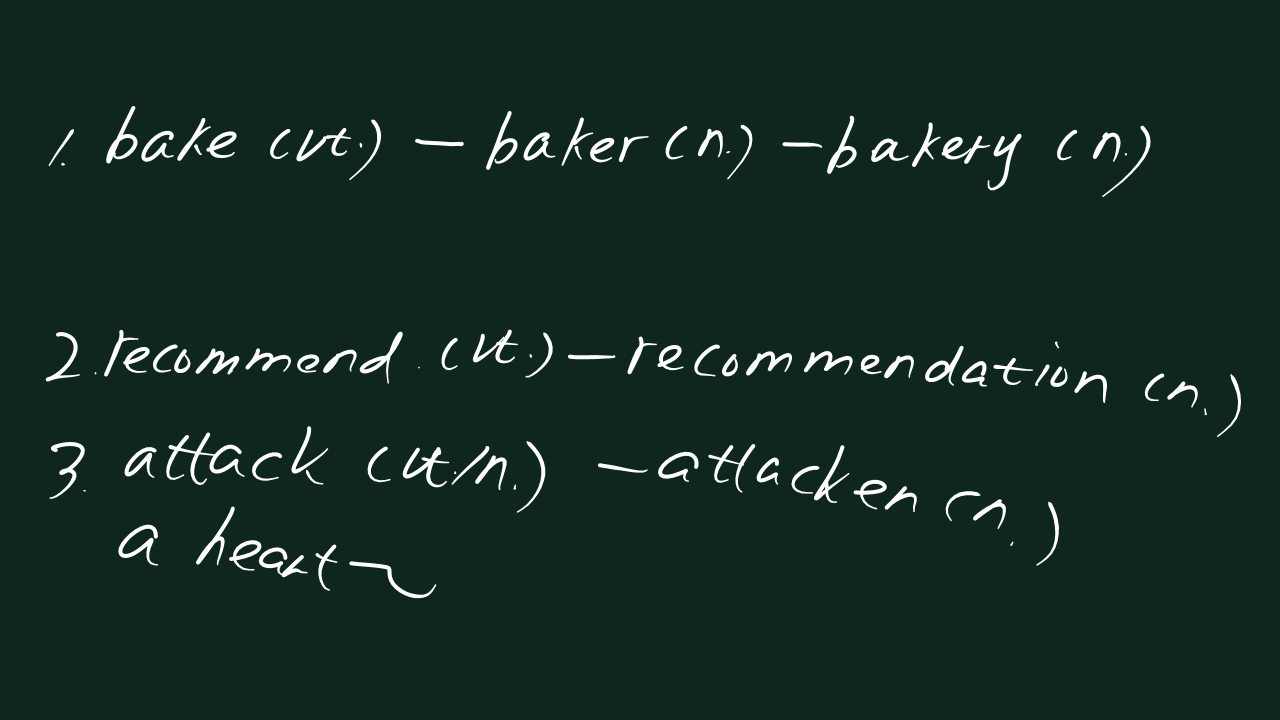 1. bake (vt.) — baker (n.) — bakery (n.)
2. recommend. (vt.) — recommendation (n.)
3. attack (vt./n.) — attacken (n.)
a heart ~